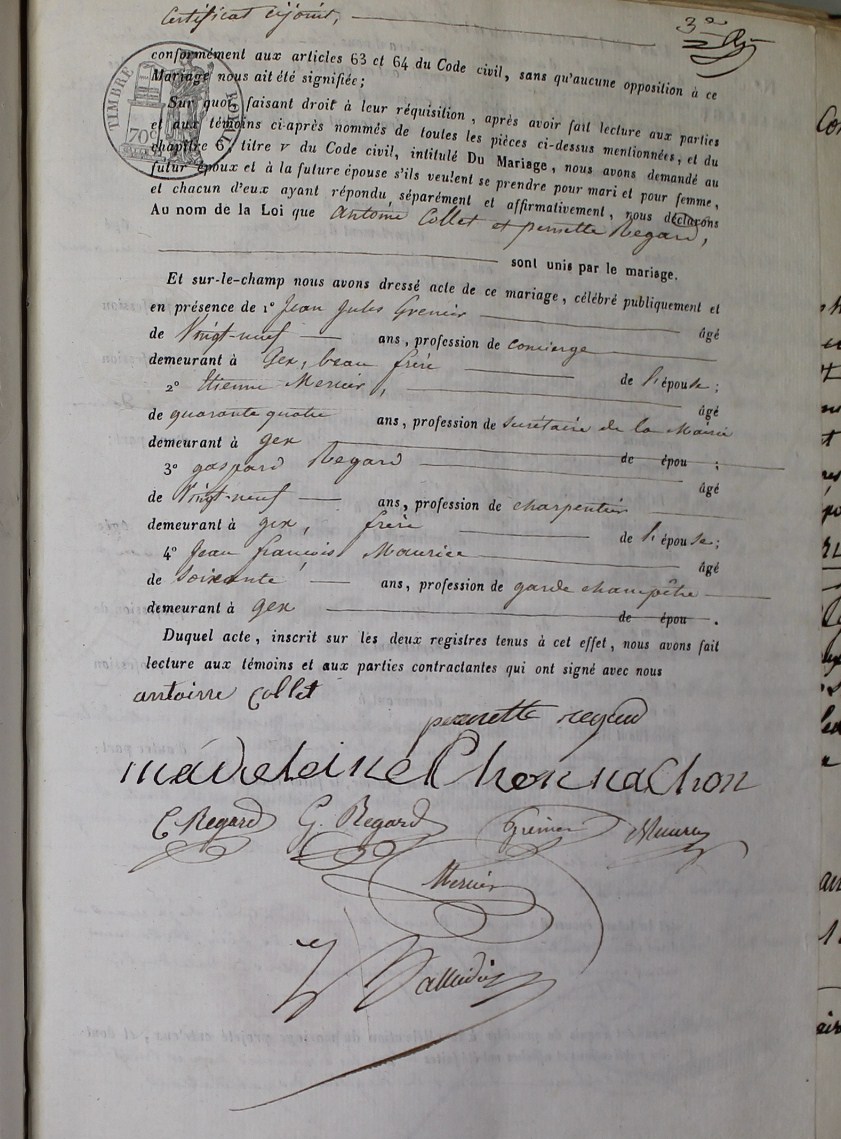 Certificat cijoint,
3e
TIMBRE ROYAL
70c
conformément aux articles 63 et 64 du Code civil, sans qu'aucune opposition à ce
Mariage nous ait été signifiée;
Sur quoi, faisant droit à leur réquisition, après avoir fait lecture aux parties
et aux témoins ci-après nommés de toutes les pièces ci-dessus mentionnées, et du
chapitre 6, titre v du Code civil, intitulé Du Mariage, nous avons demandé au
futur époux et à la future épouse s'ils veulent se prendre pour mari et pour femme,
et chacun d'eux ayant répondu, séparément et affirmativement, nous déclarons
Au nom de la Loi que antoine Collet et pernette Regard,
sont unis par le mariage.
Et sur-le-champ nous avons dressé acte de ce mariage, célébré publiquement et
en présence de 1° Jean Jules Grenier âgé
de Vingt-neuf ans, profession de concierge
demeurant à Gex, beau frère de l'épouse;
2° Etienne Mercier, âgé
de quarante quatre ans, profession de secrétaire de la Mairie
demeurant à gex de épou ;
3° gaspard Regard âgé
de Vingt-neuf ans, profession de charpentier
demeurant à gex, frère de l'épouse;
4° Jean françois Maurice âgé
de soixante ans, profession de garde champêtre
demeurant à gex de épou .
Duquel acte, inscrit sur les deux registres tenus à cet effet, nous avons fait
lecture aux témoins et aux parties contractantes qui ont signé avec nous
antoine Collet
pernette regard
madeleine Chonnachon
C. Regard G. Regard Grenier Maurice
Mercier